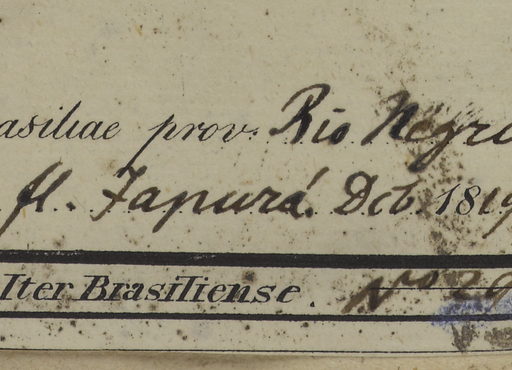 asiliae prov. Rio Negro
fl. Japurá. Dcb. 1819
Iter Brasiliense. No 29